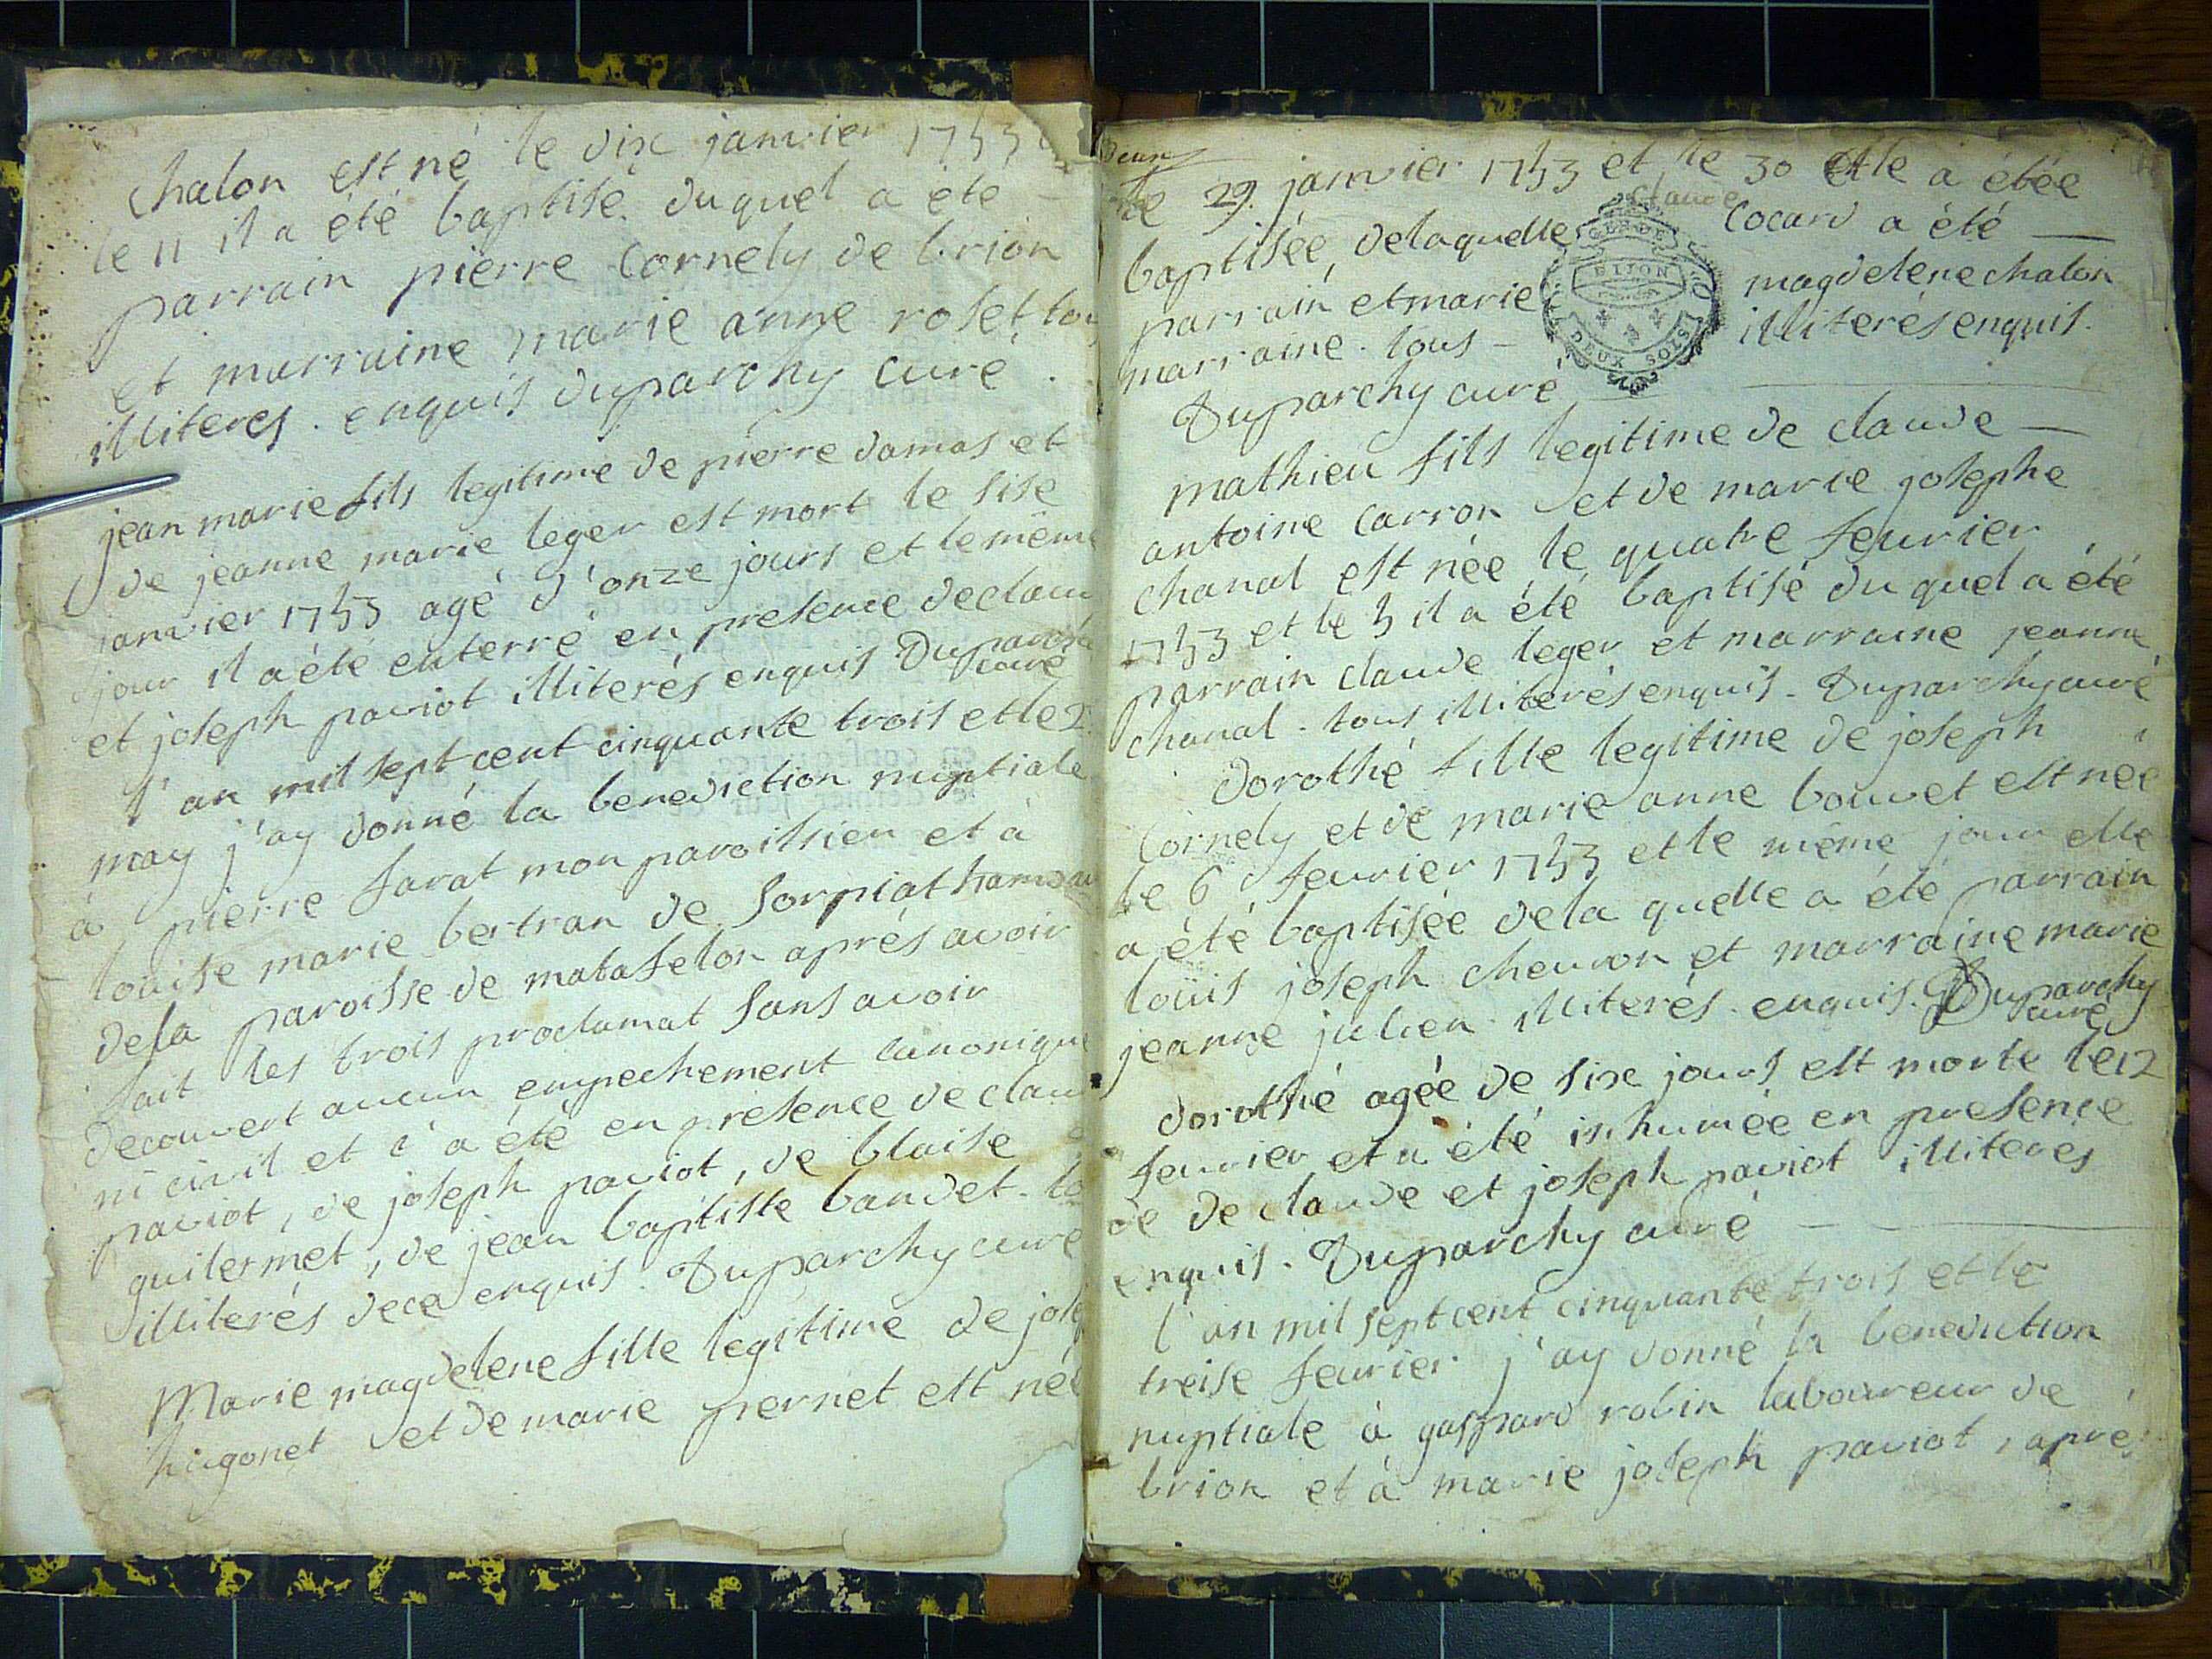 chalon est né le dix janvier 1753
le 11 il a été baptisé duquel a été
parrain pierre Cornely de brion
et marraine marie anne roset tou
illiteres. enquis duparchy curé.
jean marie fils legitime de pierre damas et
de jeanne marie leger est mort le sise
janvier 1753 agé d'onze jours et le même
jour il a été enterré en presence de clau
et joseph paviot illiterés enquis Duparchy
curé
l'an mil sept cent cinquante trois et le 2
may j'ay donné la benediction nuptiale
à pierre farat mon paroissien et à
louise marie bertran de Corpiat hameau
de la paroisse de matafelon aprés avoir
fait les trois proclamat sans avoir
decouvert aucun empechement canonique
ni civil et c'a été en presence de clau
paviot, de joseph paviot, de blaise
guilermet, de jean baptiste bandet. to
illiterés de ce enquis. Duparchy curé
Marie magdelene fille legitime de jose
hugonet et de marie pernet est née
le 29. janvier 1753 et le 30 elle a étée
baptisée, de laquelle claude Cocard a été
parrain et marie magdelene chalon
marraine. tous - illiterés enquis.
Duparchy curé
GEN DE
DIJON
DEUX SOLS
mathieu fils legitime de claude
antoine carron et de marie josephe
chanal est née le quatre fevrier
1753 et le 5 il a été baptisé du quel a été
parrain claude leger et marraine jeanne
chanal. tous illiterés enquis. Duparchy curé
dorothé fille legitime de joseph
Cornely et de marie anne bouvet est née
le 6 fevrier 1753 et le même jour elle
a été baptisée de la quelle a été parrain
loüis joseph chevron et marraine marie
jeanne julien. illiterés. enquis. Duparchy
curé
dorothé agée de six jours est morte le 12
fevrier et a été inhumée en presence
de de claude et joseph paviot illiterés
enquis. Duparchy curé
l'an mil sept cent cinquante trois et le
treise fevrier j'ay donné la benediction
nuptiale à gaspard robin laboureur de
brion et à marie joseph paviot, aprés